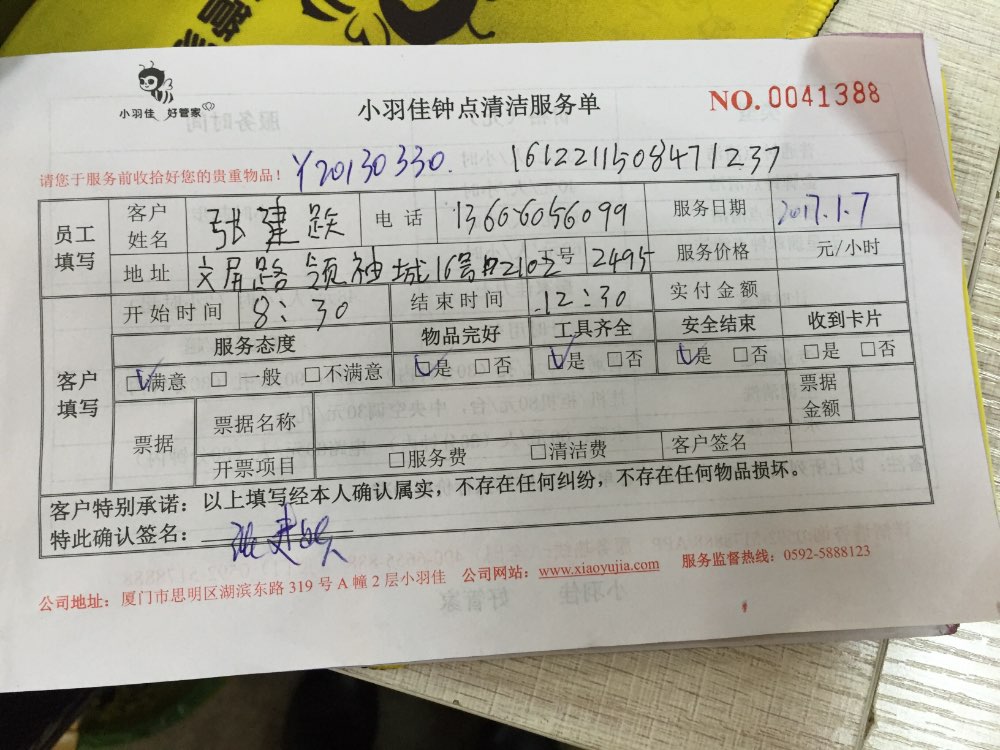 小羽佳 好管家
小羽佳钟点清洁服务单
NO. 0041388
请您于服务前收拾好您的贵重物品！ Y20130330. 1612211508471237
员工填写 客户姓名 张建跃 电话 13606056099 服务日期 2017.1.7
地址 文屏路领袖城16号 2102 工号 2495 服务价格 元/小时
客户填写 开始时间 8:30 结束时间 12:30 实付金额
服务态度 物品完好 工具齐全 安全结束 收到卡片
☑满意 □一般 □不满意 ☑是 □否 ☑是 □否 ☑是 □否 □是 □否
票据 票据名称 票据金额
开票项目 □服务费 □清洁费 客户签名
客户特别承诺：以上填写经本人确认属实，不存在任何纠纷，不存在任何物品损坏。
特此确认签名：
公司地址：厦门市思明区湖滨东路 319 号 A 幢 2 层小羽佳 公司网站：www.xiaoyujia.com 服务监督热线：0592-5888123